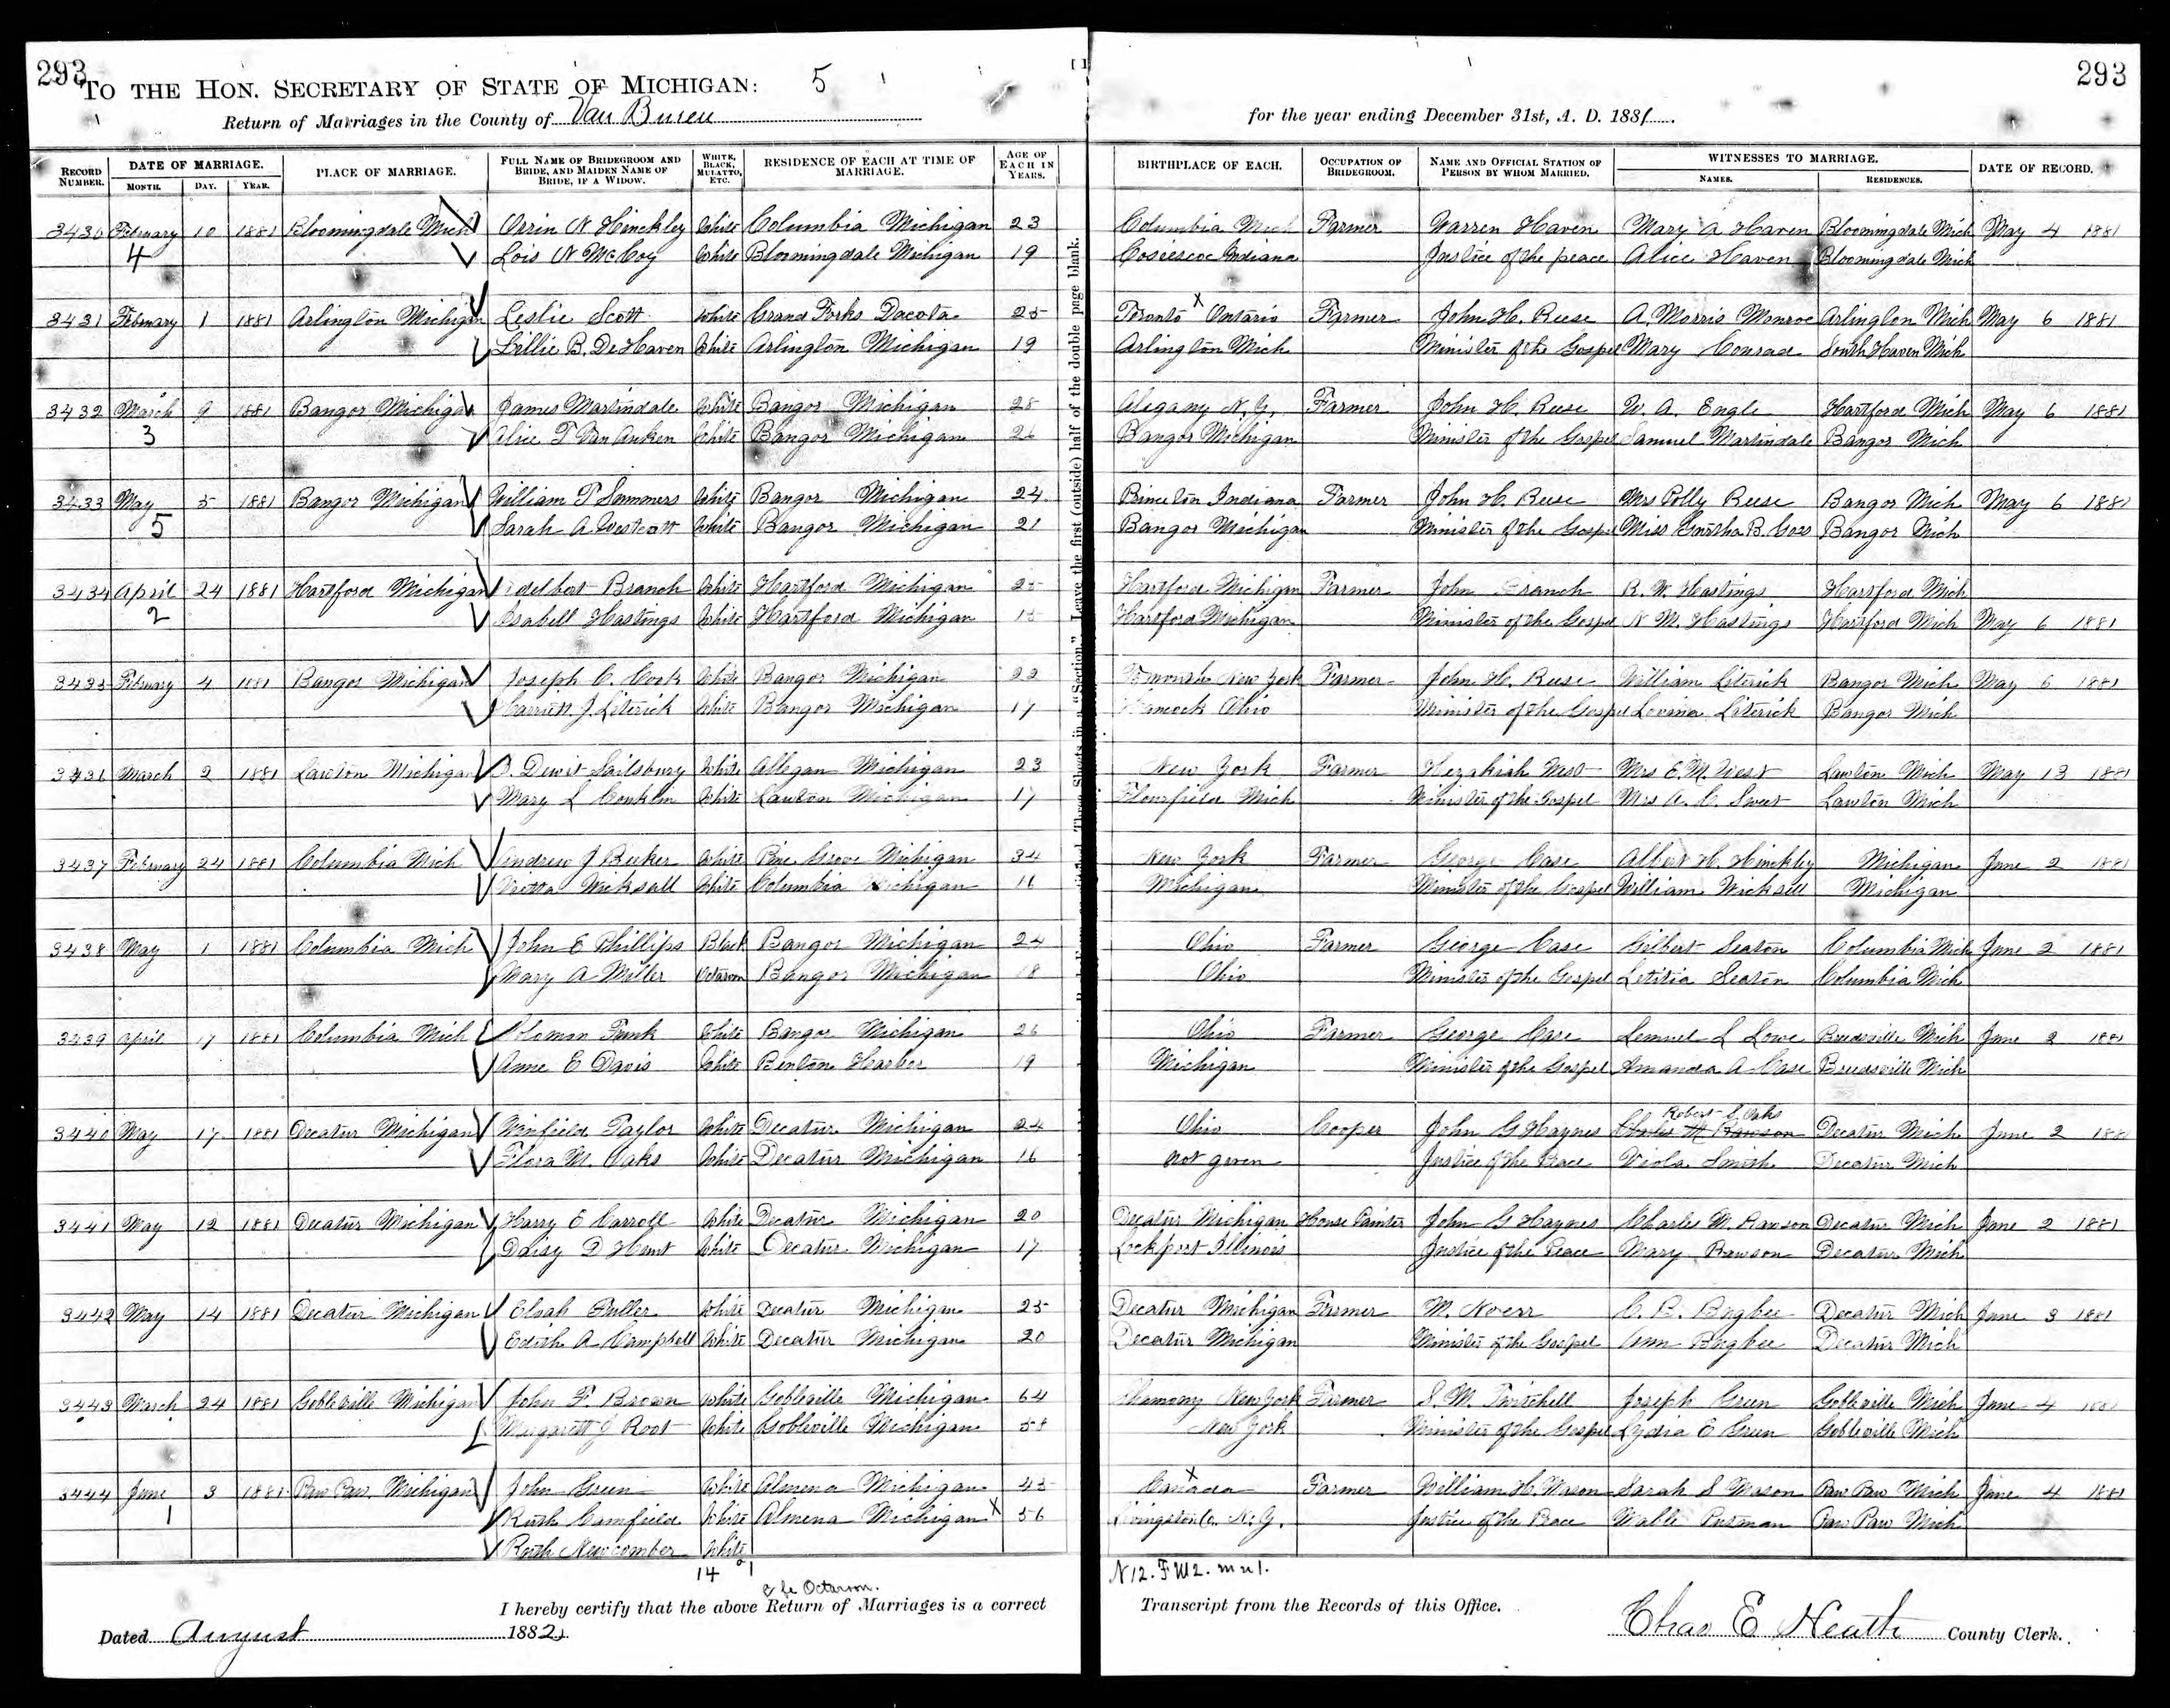 293
TO THE HON. SECRETARY OF STATE OF MICHIGAN: 5
Return of Marriages in the County of Van Buren
for the year ending December 31st, A. D. 1881.
293
RECORD NUMBER. DATE OF MARRIAGE. MONTH. DAY. YEAR. PLACE OF MARRIAGE. FULL NAME OF BRIDEGROOM AND BRIDE, AND MAIDEN NAME OF BRIDE, IF A WIDOW. WHITE, BLACK, MULATTO, ETC. RESIDENCE OF EACH AT TIME OF MARRIAGE. AGE OF EACH IN YEARS. BIRTHPLACE OF EACH. OCCUPATION OF BRIDEGROOM. NAME AND OFFICIAL STATION OF PERSON BY WHOM MARRIED. WITNESSES TO MARRIAGE. NAMES. RESIDENCES. DATE OF RECORD.
3430 February 10 1881 Bloomingdale Mich Orrin N Hinckley White Columbia Michigan 23 Columbia Mich Farmer Warren Haven Mary A Haven Bloomingdale Mich May 4 1881
4 Lois N McCoy White Bloomingdale Michigan 19 Cosciscoe Indiana Justice of the peace Alice Haven Bloomingdale Mich
3431 February 1 1881 Arlington Michigan Leslie Scott White Grand Forks Dacota 25 Toronto Ontario Farmer John H. Reese A. Morris Monroe Arlington Mich May 6 1881
Lillie B. DeHaven White Arlington Michigan 19 Arlington Mich Minister of the Gospel Mary Conrad South Haven Mich
3432 March 9 1881 Bangor Michigan James Martindale White Bangor Michigan 28 Alegany N.Y. Farmer John H. Reese W. A. Engle Hartford Mich May 6 1881
3 Alice T Van Auken White Bangor Michigan 26 Bangor Michigan Minister of the Gospel Samuel Martindale Bangor Mich
3433 May 5 1881 Bangor Michigan William T Sommers White Bangor Michigan 24 Princeton Indiana Farmer John H. Reese Mrs Polly Reese Bangor Mich May 6 1881
5 Sarah A Westcott White Bangor Michigan 21 Bangor Michigan Minister of the Gospel Miss B. Goss Bangor Mich
3434 April 24 1881 Hartford Michigan Adelbert Branch White Hartford Michigan 25 Hartford Michigan Farmer John Branch R. W. Hastings Hartford Mich
2 Isabell Hastings White Hartford Michigan 18 Hartford Michigan Minister of the Gospel N M. Hastings Hartford Mich May 6 1881
3435 February 4 1881 Bangor Michigan Joseph C. Cook White Bangor Michigan 22 New York Farmer John H. Reese William Literick Bangor Mich May 6 1881
Harriett J. Literick White Bangor Michigan 17 Hancock Ohio Minister of the Gospel Lovina Literick Bangor Mich
3436 March 2 1881 Lawton Michigan Dewit Sailsbury White Allegan Michigan 23 New York Farmer Hezakiah West Mrs E. M. West Lawton Mich May 13 1881
Mary L Conklin White Lawton Michigan 17 Flourfield Mich Minister of the Gospel Mrs A. C. Sweet Lawton Mich
3437 February 24 1881 Columbia Mich Andrew J Beeker White Pine Grove Michigan 34 New York Farmer George Case Albert H. Hinckley Michigan June 2 1881
Wicksall White Columbia Michigan 16 Michigan Minister of the Gospel William Wicksell Michigan
3438 May 1 1881 Columbia Mich John E Phillips Black Bangor Michigan 24 Ohio Farmer George Case Gilbert Seaton Columbia Mich June 2 1881
Mary A Miller Octaroon Bangor Michigan 18 Ohio Minister of the Gospel Letitia Seaton Columbia Mich
3439 April 17 1881 Columbia Mich Soloman Funk White Bangor Michigan 26 Ohio Farmer George Case Lemuel L Lowe Breedsville Mich June 2 1881
Anne E Davis White Benton Harbor 19 Michigan Minister of the Gospel Amanda A Case Breedsville Mich
Robert S. Oaks
3440 May 17 1881 Decatur Michigan Winfield Taylor White Decatur Michigan 24 Ohio Cooper John G Haynes Charles M Rawson Decatur Mich June 2 1881
Flora M. Oaks White Decatur Michigan 16 not given Justice of the Peace Viola Smith Decatur Mich
3441 May 12 1881 Decatur Michigan Harry E Carroll White Decatur Michigan 20 Decatur Michigan House Painter John G Haynes Charles M. Rawson Decatur Mich June 2 1881
Daisy D Hunt White Decatur Michigan 17 Lockport Illinois Justice of the Peace Mary Rawson Decatur Mich
3442 May 14 1881 Decatur Michigan Fuller White Decatur Michigan 25 Decatur Michigan Farmer M. C. B. Bagbee Decatur Mich June 3 1881
Edith A Campbell White Decatur Michigan 20 Decatur Michigan Minister of the Gospel Ann Bagbee Decatur Mich
3443 March 24 1881 Gobleville Michigan John F. Brown White Gobleville Michigan 64 New York Farmer S. M. Twitchell Joseph Green Gobleville Mich June 4 1881
Margarett J Root White Gobleville Michigan 58 New York Minister of the Gospel Lydia E Green Gobleville Mich
3444 June 3 1881 Paw Paw Michigan John Green White Almena Michigan 45 Canada Farmer William H. Mason Sarah S Mason Paw Paw Mich June 4 1881
1 Ruth Camfield White Almena Michigan X 56 Livingston Co. N.Y. Justice of the Peace Wable Putman Paw Paw Mich
Ruth Newcomber White
14 1
N12. F W2. m u 1.
& fe Octaroon.
I hereby certify that the above Return of Marriages is a correct Transcript from the Records of this Office.
Dated August 1882. Chas E Heath County Clerk.
Leave the first (outside) half of the double page blank.